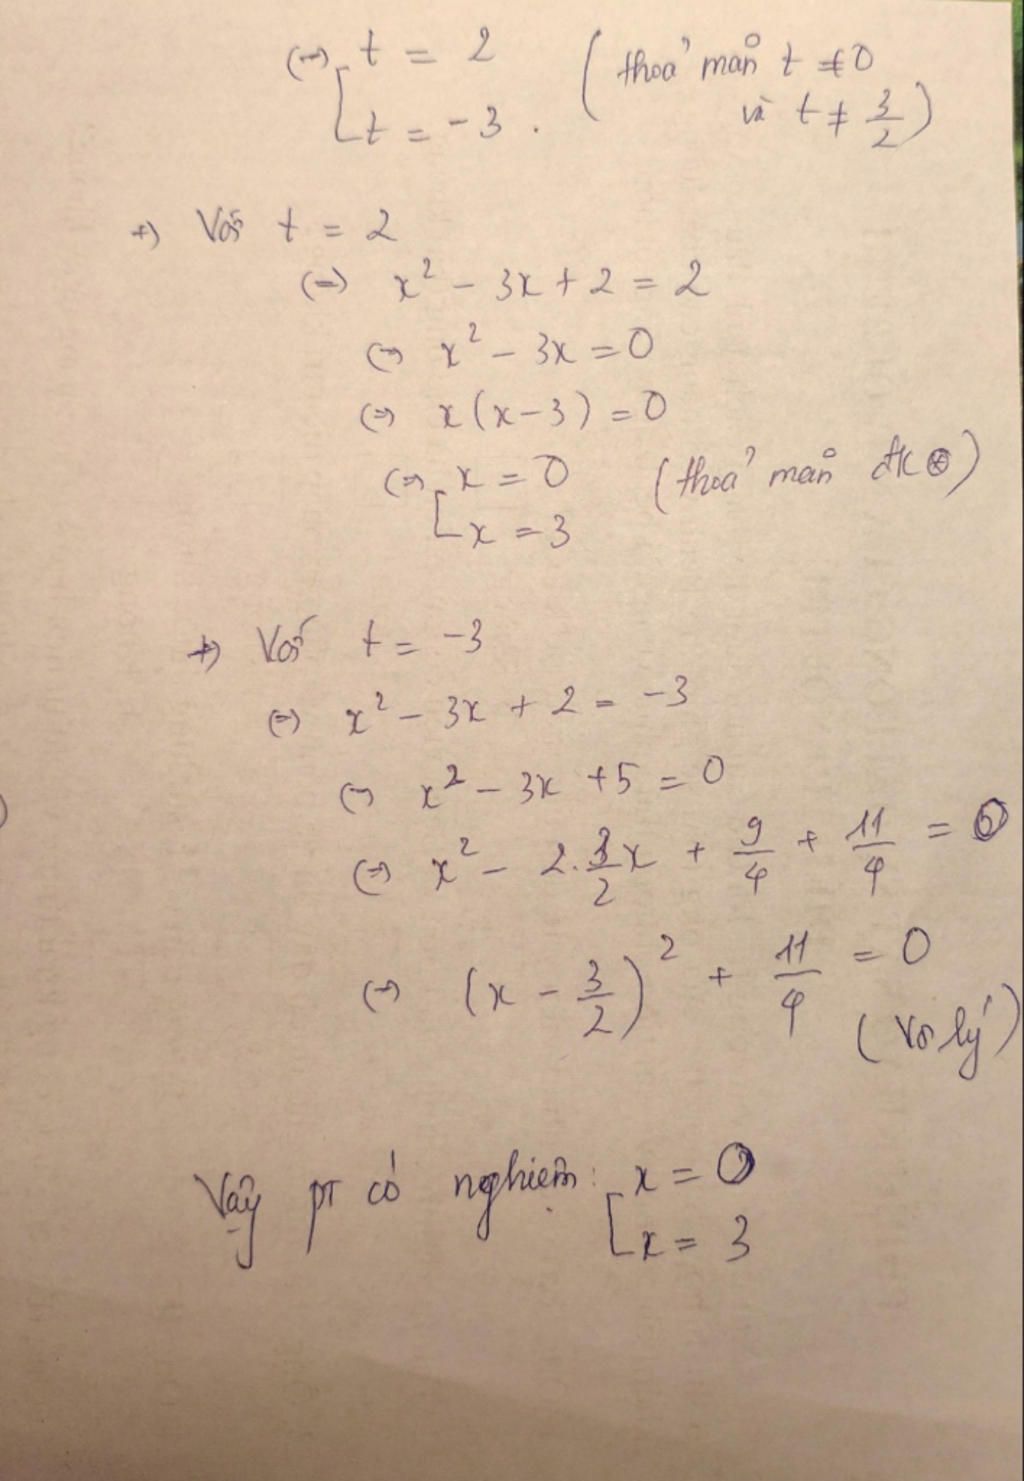 (=) [ t = 2 (thoả mãn t ≠ 0
t = -3. và t ≠ 3/2)
+) Với t = 2
(=) x² - 3x + 2 = 2
(=) x² - 3x = 0
(=) x(x-3) = 0
(=) [ x = 0 (thoả mãn đk ⊛)
x = 3
+) Với t = -3
(=) x² - 3x + 2 = -3
(=) x² - 3x + 5 = 0
(=) x² - 2.3/2x + 9/4 + 11/4 = 0
(=) (x - 3/2)² + 11/4 = 0
(Vô lý)
Vậy pt có nghiệm: [ x = 0
x = 3